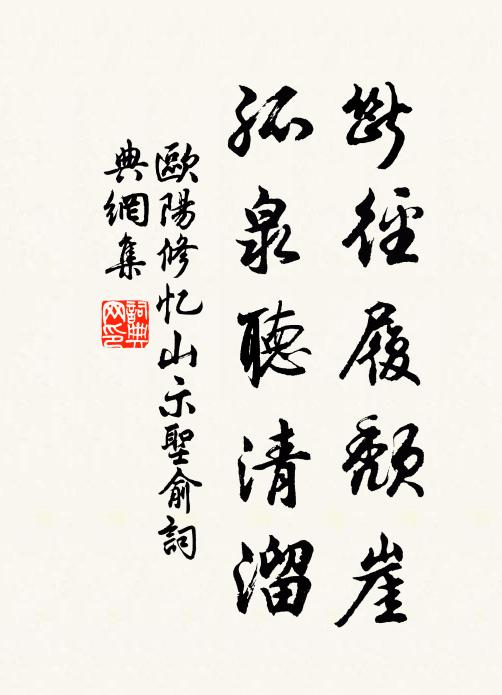 斷徑履頹崖
孤泉聽清溜
歐陽修忆山示聖俞詞
典網集
詞典
网印